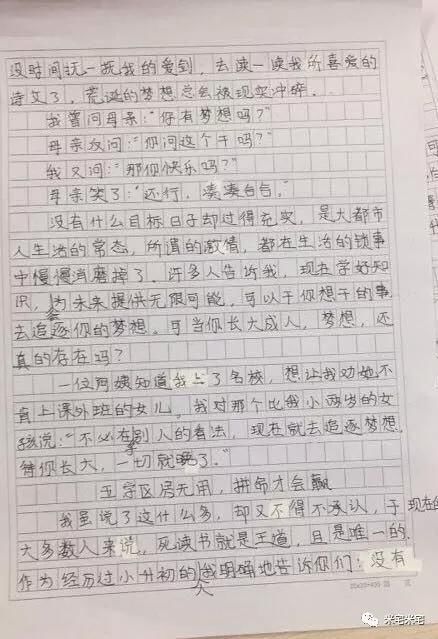 没时间抚一抚我的爱剑，去读一读我所喜爱的
诗文了，荒诞的梦想总会被现实冲碎．
我曾问母亲：“你有梦想吗？”
母亲反问：“你问这个干吗？”
我又问：“那你快乐吗？”
母亲笑了：“还行，凑凑合合。”
没有什么目标日子却过得充实，是大都市
人生活的常态，所谓的激情，都在生活的锁事
中慢慢消磨掉了。许多人告诉我，现在学好知
识，会为未来提供无限可能，可以干你想干的事，
去追逐你的梦想。可当你长大成人，梦想，还
真的存在吗？
一位阿姨知道我上了名校，想让我劝她不
肯上课外班的女儿。我对那个比我小两岁的女
孩说：“不必在乎别人的看法，现在就去追逐梦想，
待你长大，一切就晚了。”
五学区房无用，拼命才会赢
我虽说了这什么多，却又不得不承认，于现在的
大多数人来说，死读书就是王道，且是唯一的．
作为经历过小升初的人我明确地告诉你们：没有
20×20=400
页
米宅米宅